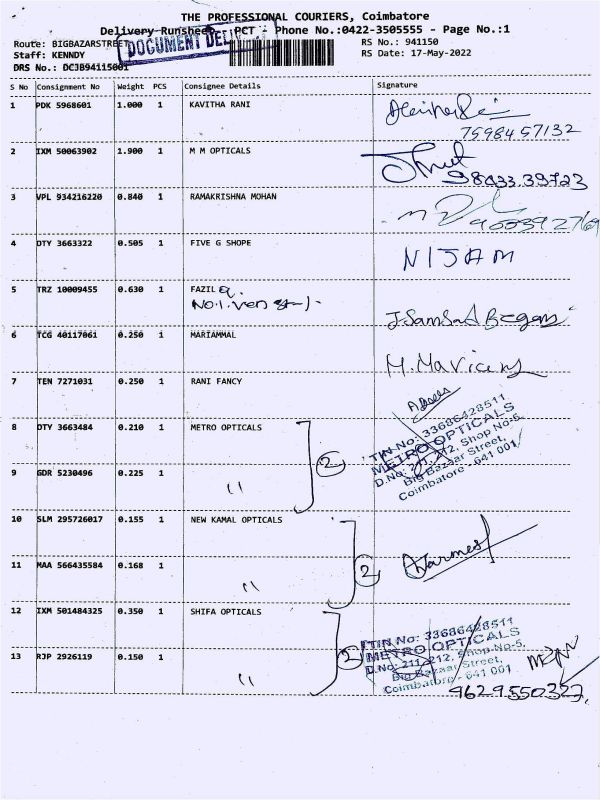 THE PROFESSIONAL COURIERS, Coimbatore
Delivery Runsheet - PCT - Phone No.:0422-3505555 - Page No.:1
Route: BIGBAZARSTREET
DOCUMENT
RS No.: 941150
Staff: KENNDY
RS Date: 17-May-2022
DRS No.: DC3B94115001
S No Consignment No Weight PCS Consignee Details Signature
1 PDK 5968601 1.000 1 KAVITHA RANI
7598457132
2 IXM 50063902 1.900 1 M M OPTICALS
98433 39723
3 VPL 934216220 0.840 1 RAMAKRISHNA MOHAN
4 DTY 3663322 0.505 1 FIVE G SHOPE NIJAM
5 TRZ 10009455 0.630 1 FAZIL
J. Samsad Begam
6 TCG 40117061 0.250 1 MARIAMMAL
7 TEN 7271031 0.250 1 RANI FANCY
8 DTY 3663484 0.210 1 METRO OPTICALS
2
TIN No: 33686428511
METRO OPTICALS
D.No: 211, 212, Shop No-5,
Big Bazaar Street,
Coimbatore - 641 001
9 GDR 5230496 0.225 1 "
10 SLM 295726017 0.155 1 NEW KAMAL OPTICALS
2
11 MAA 566435584 0.168 1 "
12 IXM 501484325 0.350 1 SHIFA OPTICALS
2
TIN No: 33686428511
METRO OPTICALS
D.No: 211, 212, Shop No-5,
Big Bazaar Street,
Coimbatore - 641 001
13 RJP 2926119 0.150 1 "
9629550322